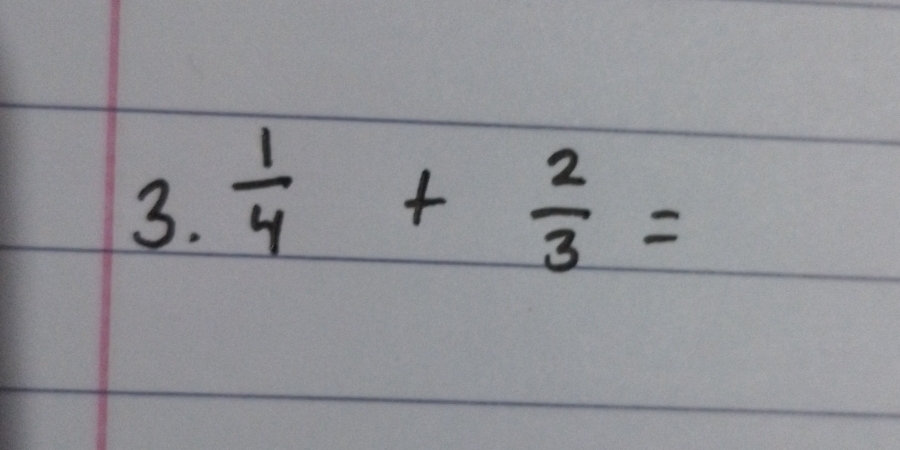 3. 1/4 + 2/3 =